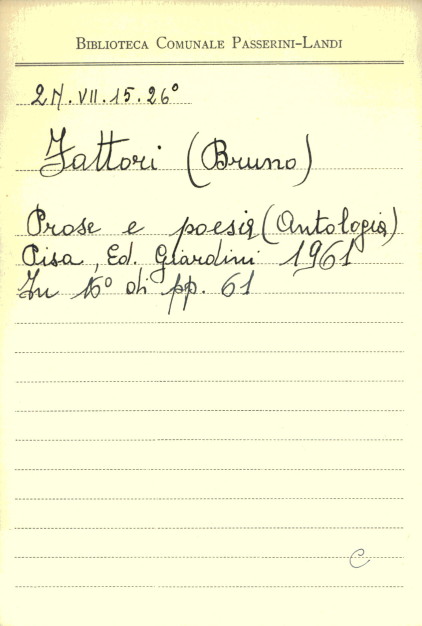 BIBLIOTECA COMUNALE PASSERINI-LANDI
2N.VII.15.26°
Fattori (Bruno)
Prose e poesia (Antologia)
Pisa, Ed. Giardini 1961
In 16° di pp. 61
C